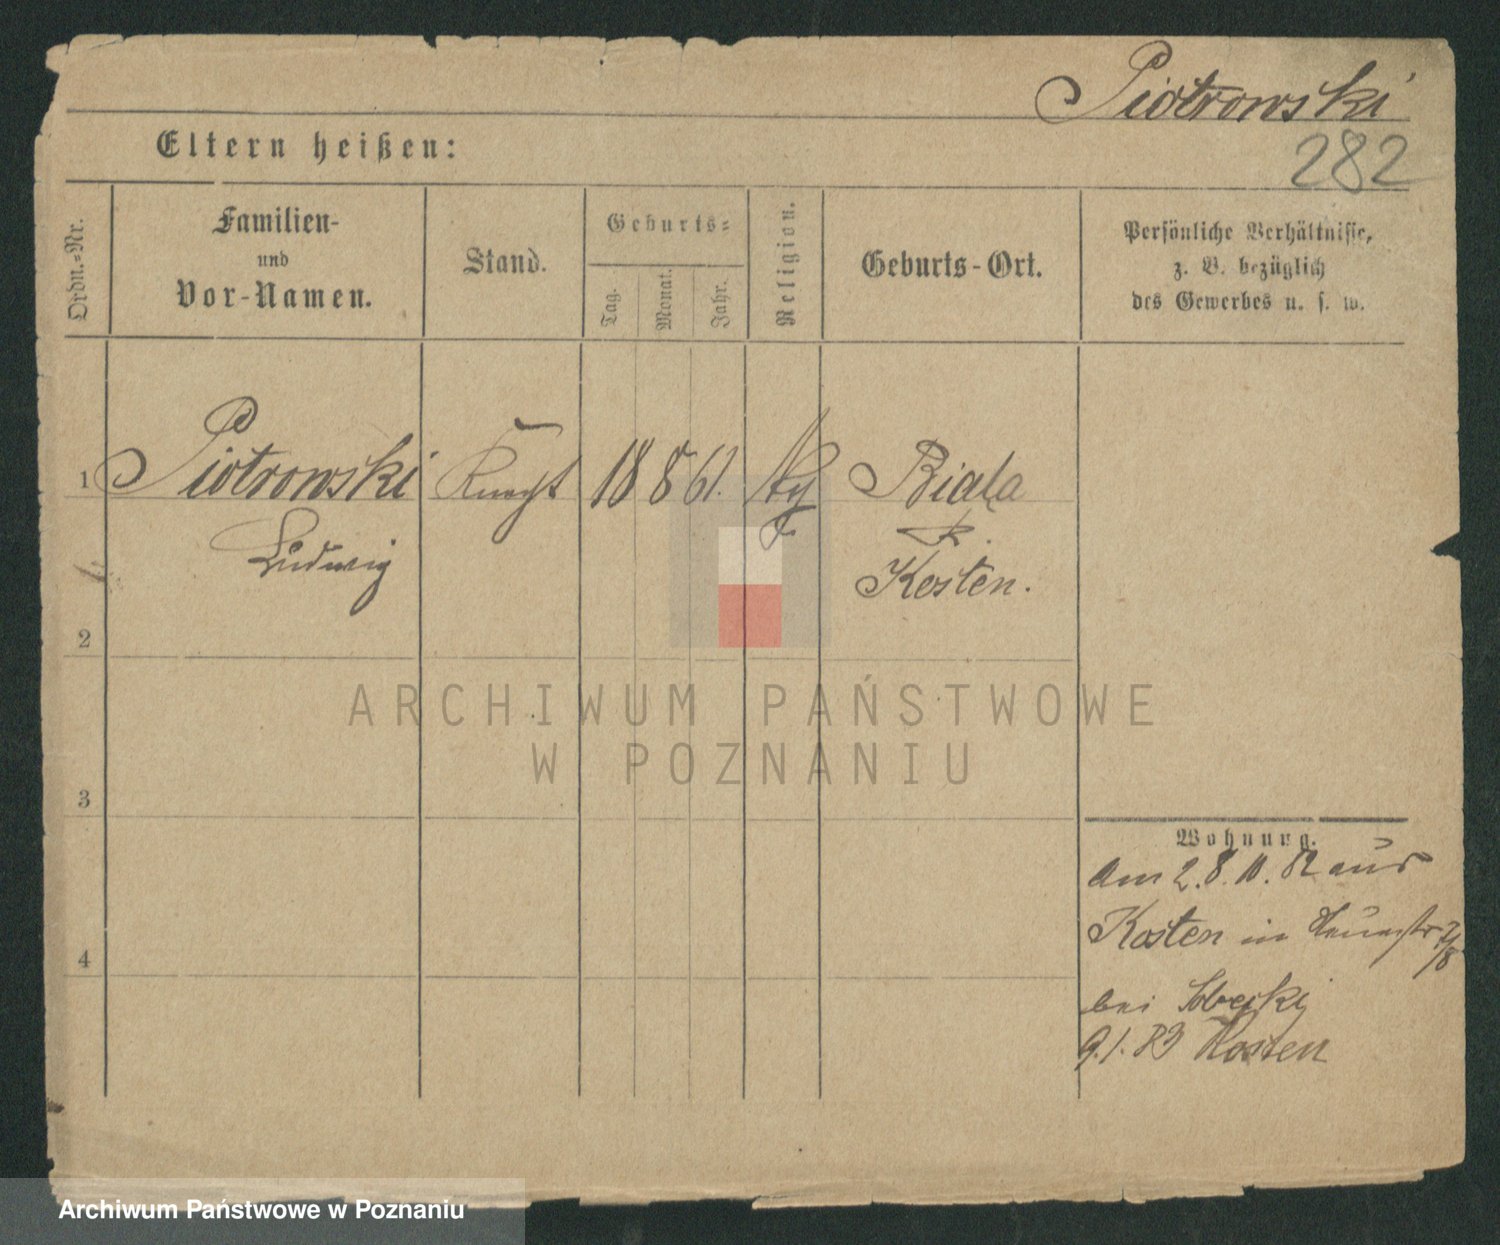 Piotrowski
282
Eltern heißen:
Ordn.-Nr.
Familien-
und
Vor-Namen.
Stand.
Geburts-
Tag.
Monat.
Jahr.
Religion.
Geburts-Ort.
Persönliche Verhältnisse,
z. B. bezüglich
des Gewerbes u. s. w.
1 Piotrowski Knecht 18 8 61. Biala
Ludwig
Kr.
Kosten.
2
3
4
Wohnung.
Am 2.8.10.82 aus
Kosten in
bei
9.1.83 Kosten
ARCHIWUM PAŃSTWOWE
W POZNANIU
Archiwum Państwowe w Poznaniu